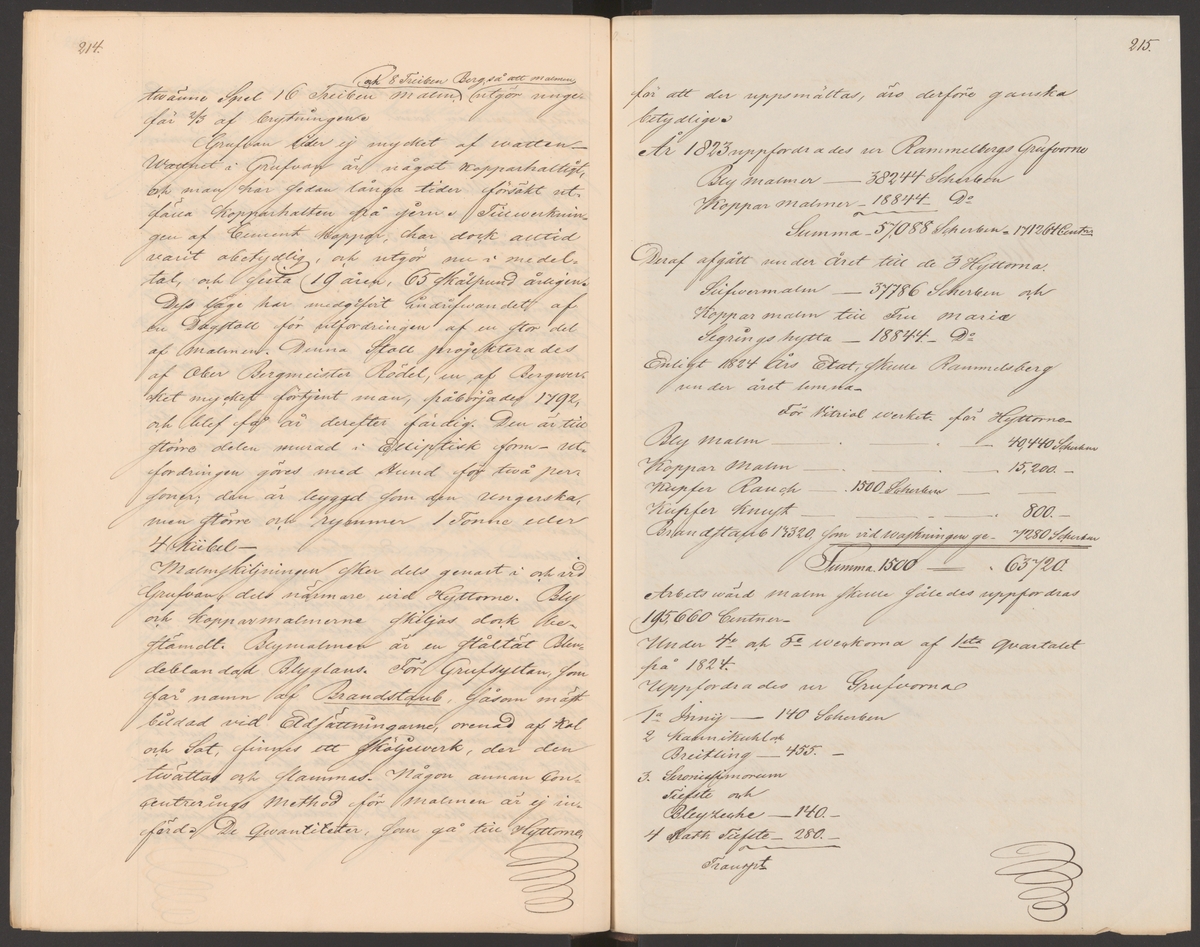 214.
och 8 Treiben Berg, så att malmen
twänne Spel 16 Treiben malm, utgör unge-
fär 2/3 af brytningen.
Grufvan lider ej mycket af watten—
Wattnet i Grufvan är något kopparhaltigt,
och man har sedan långa tider försökt ut-
fälla kopparhalten på jern. Tillwerknin-
gen af Cement Koppar, har dock alltid
varit obetydlig, och utgör nu i medel-
tal, och sista 19 åren, 65 Skålpund årligen.
Dess läge har medgifvit indrifwandet af
en Dagstoll för utfordringen af en stor del
af malmen. Denna Stoll projekterades
af Ober Bergmeister Rödel, en af Bergwer-
ket mycket förtjent man, påbörjades 1792,
och blef få år derefter färdig. Den är till
större delen murad i Elliptisk form— ut-
fordringen göres med Hund för två per-
soner; den är byggd som den ungerska,
men större och rymmer 1 Tonne eller
4 Kübel—
Malmskiljningen sker dels genast i och vid
Grufvan, dels närmare vid Hyttorne. Bly
och Kopparmalmerne skiljas dock be-
stämdt. Blymalmen är en ståltät Blen-
deblandad Blyglans. För Grufsyltan, som
får namn af Brandstaub, såsom mäst
bildad vid Eldsättningarne, orenad af Kol
och Sot, finnes ett Sköljewerk, der den
twättas och slammas. Någon annan Con-
centrerings Method för malmen är ej in-
förd. De Qvantiteter, som gå till Hyttorne,
215.
för att der uppsmältas, äro derföre ganska
betydlige.
År 1823 uppfordrades ur Rammelbergs Grufvorne
Bly malmer — 38244 Scherben
Koppar malmer — 18844 — Do
Summa — 57,088 Scherben = 171264 Centn.
Deraf afgått under året till de 3 Hyttorna.
Silfwermalm — 37786 Scherben och
Koppar malm till Fru Maria
Segrings hytta — 18844 — Do
Enligt 1824 års Etat, skulle Rammelsberg
under året lemna—
För Vitriol werket. för Hyttorne—
Bly malm — . . — 40,440 Scherben
Koppar Malm — . — . — 15,200. —
Kupfer Rauch — 1500 Scherben — —
Kupfer Knyst — . — . — 800. —
Brandstaub 17320, som vid waskningen ge- 7280 Scherben
Summa. 1500 — . 63720.
Arbetswärd malm skulle således uppfordras
195,660 Centner—
Under 4e och 5e weckorna af 1sta Qvartalet
på 1824.
Uppfordrades ur Grufvorna
1a Inny — 140 Scherben
2 Kannikuhl och
Breitling — 455. —
3. Serenissimorum
Tiefste och
Bleyzeche — 140. —
4 Rath Tiefste — 280. —
Transpt